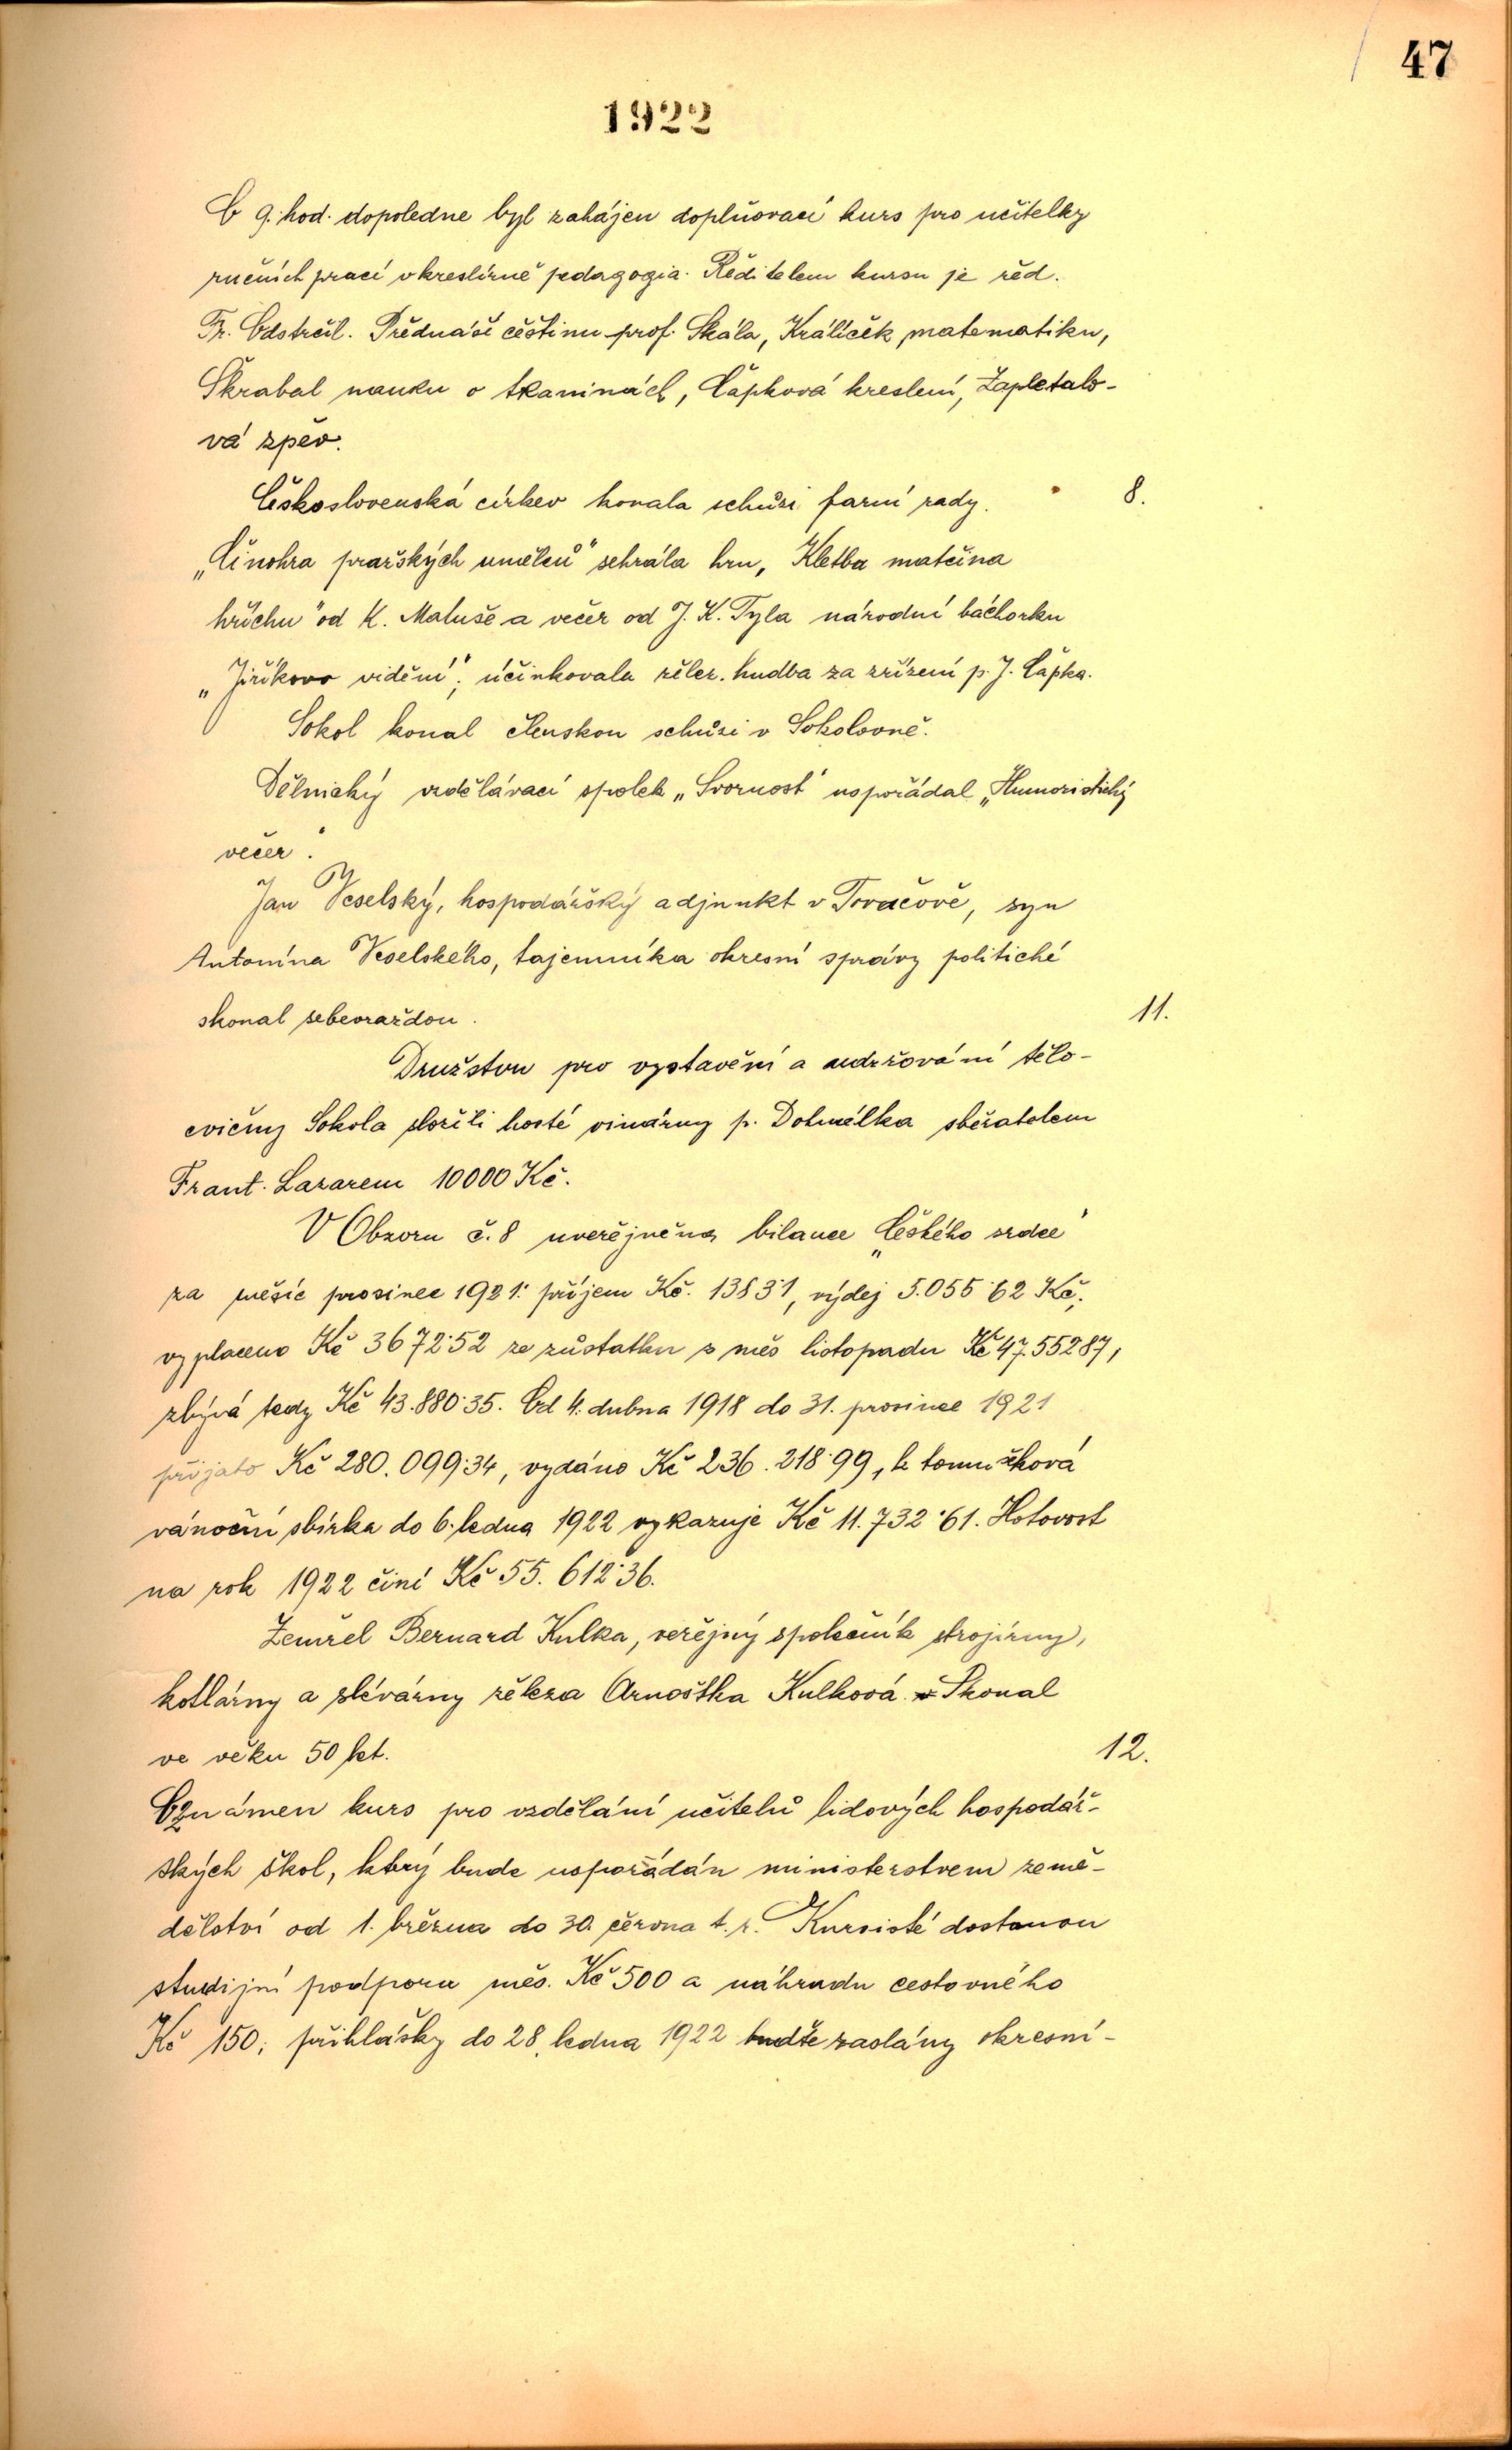 47
1922
O 9. hod. dopoledne byl zahájen doplňovací kurs pro učitelky
ručních prací v kreslírně pedagogia. Ředitelem kursu je řed.
Fr. Odstrčil. Přednáší češtinu prof. Skála, Králíček matematiku,
Škrabal nauku o tkaninách, Čápková kreslení, Zapletalo-
vá zpěv.
Československá církev konala schůzi farní rady. 8.
„Činohra pražských umělců" sehrála hru „Kletba matčina
hříchu" od K. Maluše a večer od J. K. Tyla národní báchorku
„Jiříkovo vidění"; účinkovala želez. hudba za řízení p. J. Čápka.
Sokol konal členskou schůzi v Sokolovně.
Dělnický vzdělávací spolek „Svornost" uspořádal „Humoristický
večer".
Jan Veselský, hospodářský adjunkt v Tovačově, syn
Antonína Veselského, tajemníka okresní správy politické
skonal sebevraždou. 11.
Družstvu pro vystavění a udržování tělo-
cvičny Sokola složili hosté vinárny p. Dohnálka sběratelem
Frant. Lazarem 10000 Kč.
V Obzoru č. 8 uveřejněna bilance „Českého srdce"
za měsíc prosinec 1921: příjem Kč. 1383·1, výdej 5.055·62 Kč,
vyplaceno Kč 3672·52 ze zůstatku z měs listopadu Kč 47.552·87,
zbývá tedy Kč 43.880·35. Od 4. dubna 1918 do 31. prosince 1921
přijato Kč 280.099·34, vydáno Kč 236.218·99, k tomu
vánoční sbírka do 6. ledna 1922 vykazuje Kč 11.732·61. Hotovost
na rok 1922 činí Kč 55.612·36.
Zemřel Bernard Kulka, veřejný společník strojírny,
kotlárny a slévárny železa Arnoštka Kulková. Skonal
ve věku 50 let. 12.
Oznámen kurs pro vzdělání učitelů lidových hospodář-
ských škol, který bude uspořádán ministerstvem země-
dělství od 1. března do 30. června t. r. Kursisté dostanou
studijní podporu měs. Kč 500 a náhradu cestovného
Kč 150; přihlášky do 28. ledna 1922 buďte zaslány okresní-